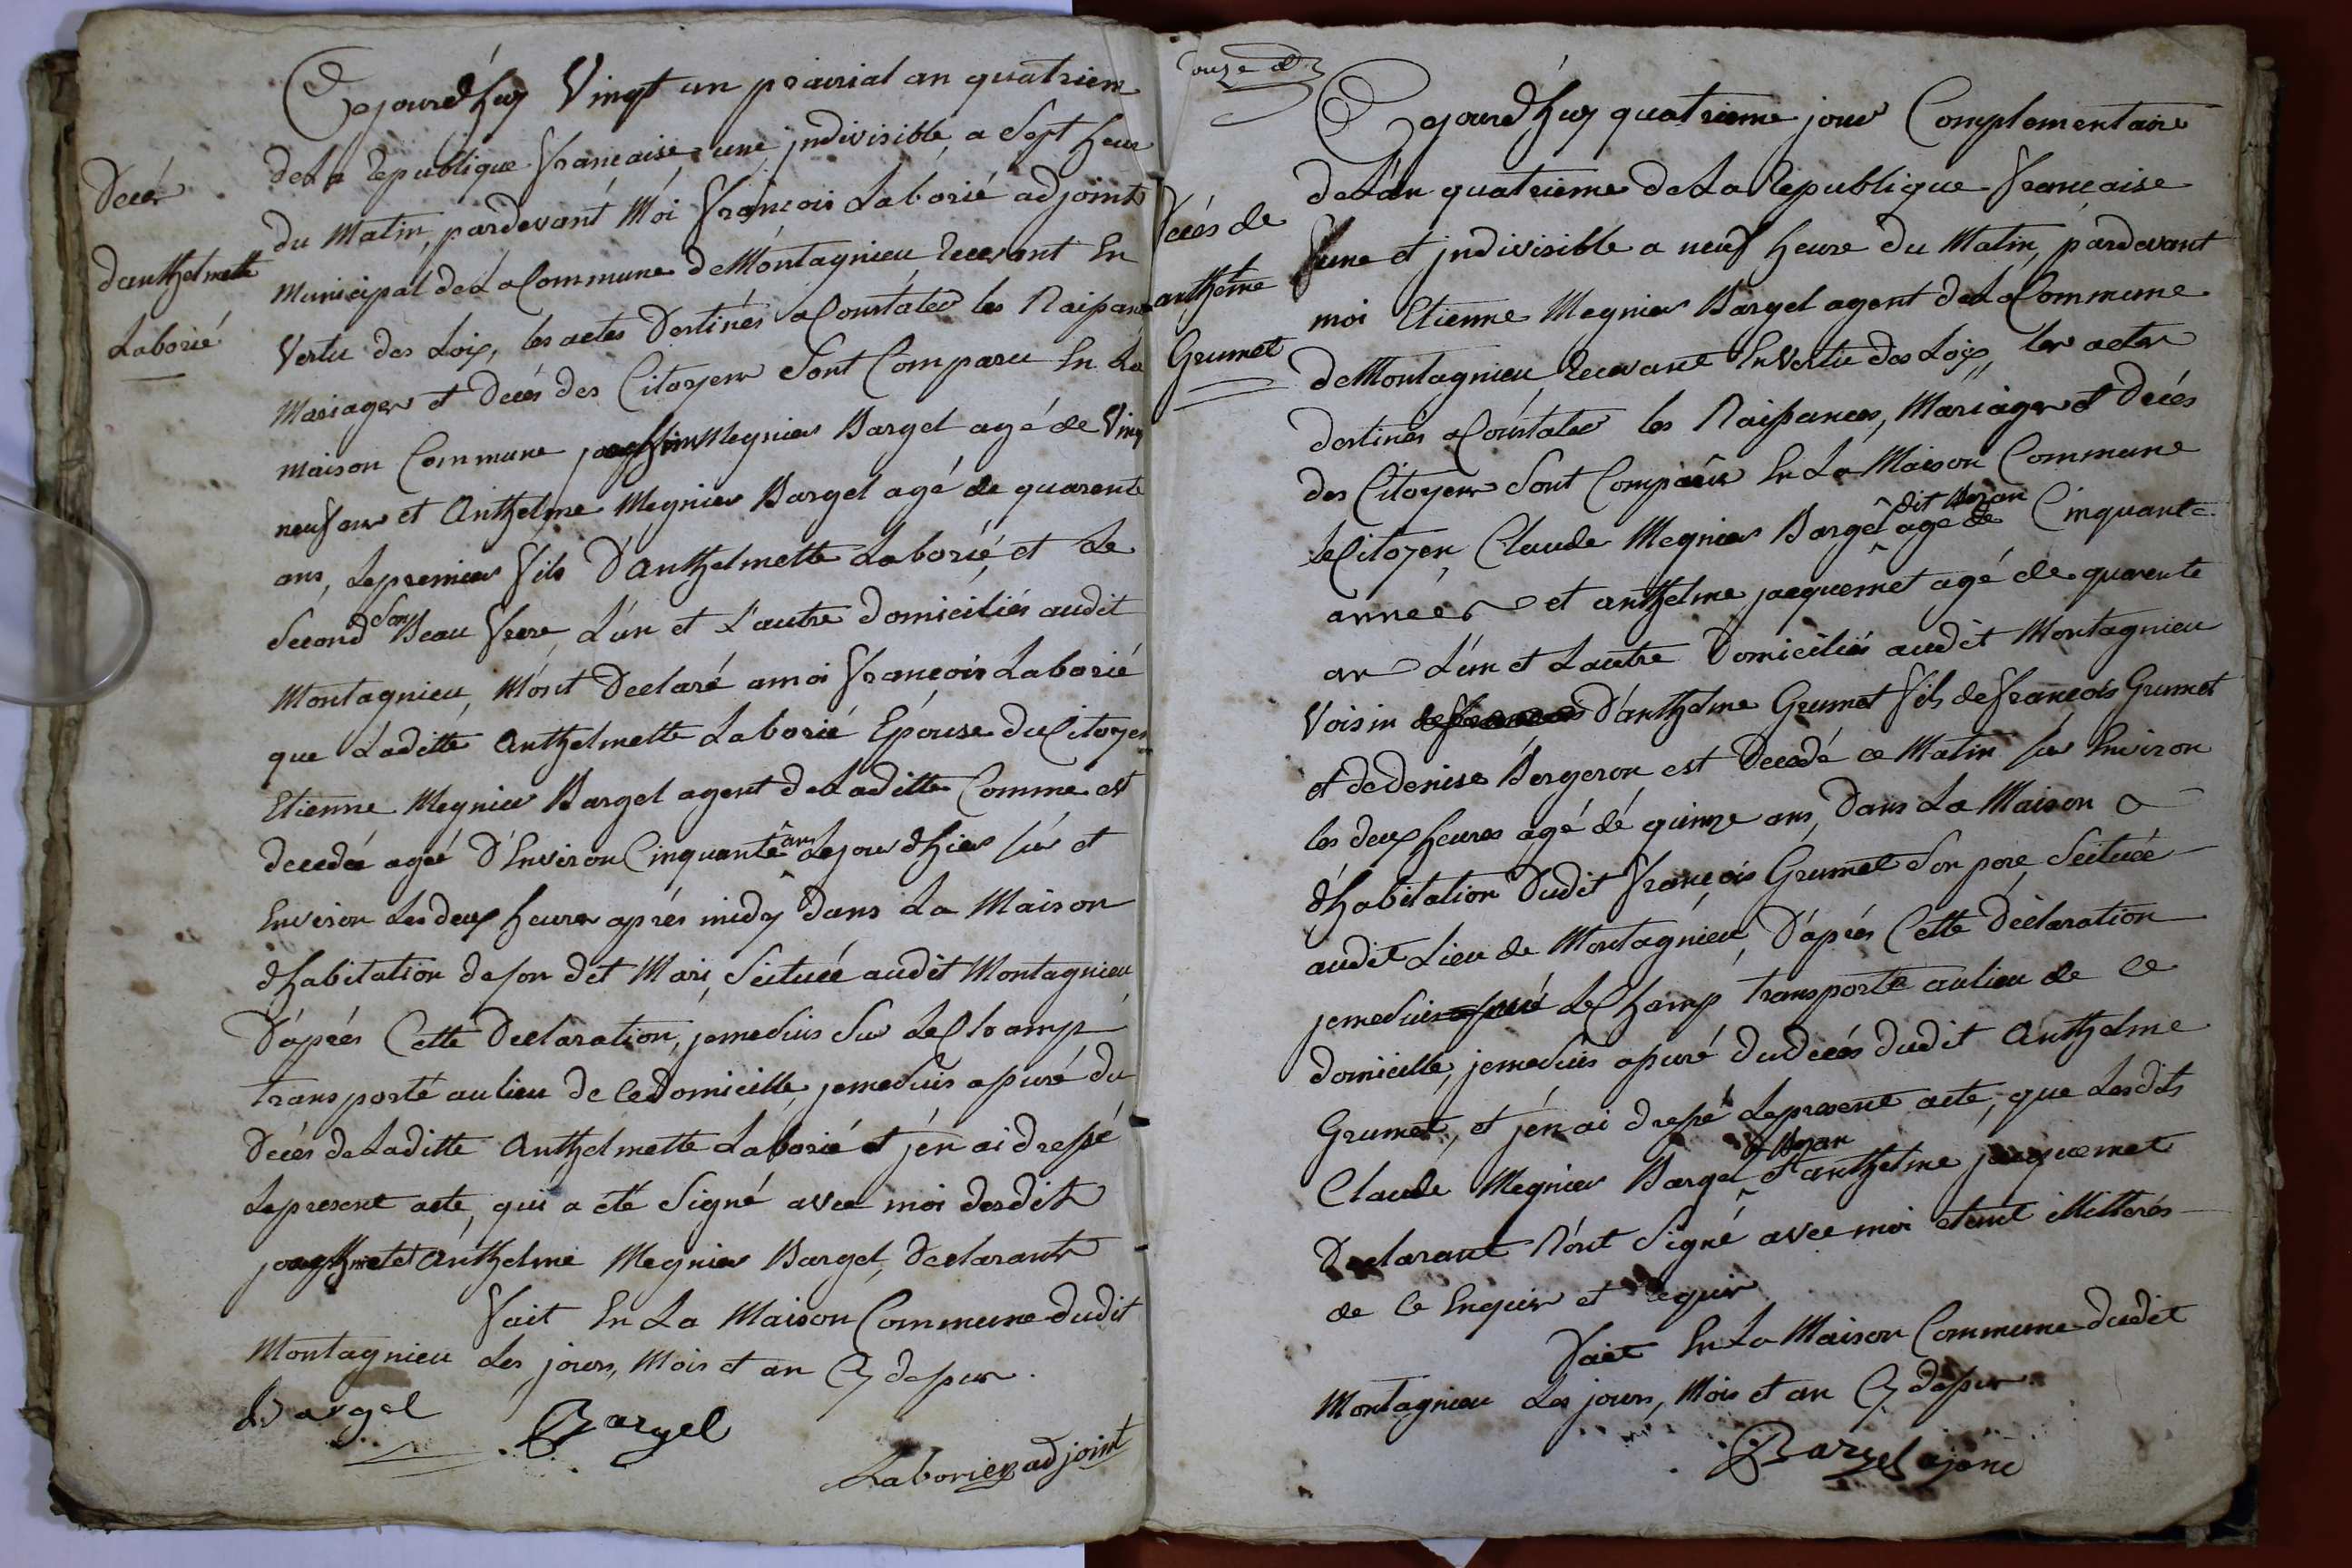 Decés
d'anthelmette
Laborié
Cejourd'huy Vingt un prairial an quatriem
dela Republique francaise une jndivisible, a Sept heur
du Matin, pardevant Moi françois Laborié adjoint
Municipal dela Commune de Montagnieu Recevant En
Vertu des Loix, les actes Destinés a Constater les Naissance
Mariages et Decés des Citoyens Sont Comparu En La
Maison Commune Megnier Bargel agé de Vingt
neuf ans et Anthelme Megnier Bargel agé de quarente
ans, Lepremier fils D'anthelmette Laborié, et Le
Second Son Beau frere, L'un et L'autre Domiciliés audit
Montagnieu, M'ont Declaré amoi françois Laborié
que Laditte Anthelmette Laborié Epouse du Citoyen
Etienne Megnier Bargel agent deLaditte Comme est
decedée ageé D'Environ Cinquante ans Lejour d'hier sur et
Environ Les deux heures aprés midy dans La Maison
d'habitation deson dit Mari, Scituée audit Montagnieu
D'aprés Cette Declaration, jemesuis Sur LeChamp
transporté aulieu de CeDomicille, jemesuis assuré du
Décés deLaditte Anthelmette Laborié et j'en ai dressé
Lepresent acte, qui a été Signé avec moi desdits
et Anthelme Megnier Bargel, Declarants
fait En La Maison Commune dudit
Montagnieu Les jours, Mois et an Cy dessus.
Bargel Bargel
Laborier adjoint
douze &
Décés de
anthelme
Grumet
Cejourd'huy quatrieme jour Complementaire
deL'an quatrieme deLaRepublique francaise
une et jndivisible a neuf heure du Matin, pardevant
moi Etienne Megnier Bargel agent deLaCommune
deMontagnieu Recevant En Vertu des Loix, les actes
destinés aConstater les Naissances, Mariages et Decés
des Citoyens Sont Comparu En La Maison Commune
leCitoyen Claude Megnier Bargel dit agé de Cinquante
années et anthelme jacquemet agé de quarente
an L'un et Lautre Domiciliés audit Montagnieu
Voisin D'anthelme Grumet fils de françois Grumet
et deDenise Bergeron est Decedé ce Matin sur Environ
les deux heures agé de quinze ans, Dans La Maison
d'habitation Dudit françois Grumet Son pere, Scituée
audit Lieu de Montagnieu, D'aprés Cette Déclaration
jemesuis LeChamp transporté aulieu de Ce
domicille, jemesuis assuré dudecés dudit Anthelme
Grumet, et j'en ai dressé Lepresent acte, que Lesdits
Claude Megnier Bargel et anthelme jacquemet
Declarant N'ont Signé avec moi etant illitterés
de Ce Enquis et Requis
fait En La Maison Commune dudit
Montagnieu Les jours, Mois et an Cy dessus
Bargel ajant